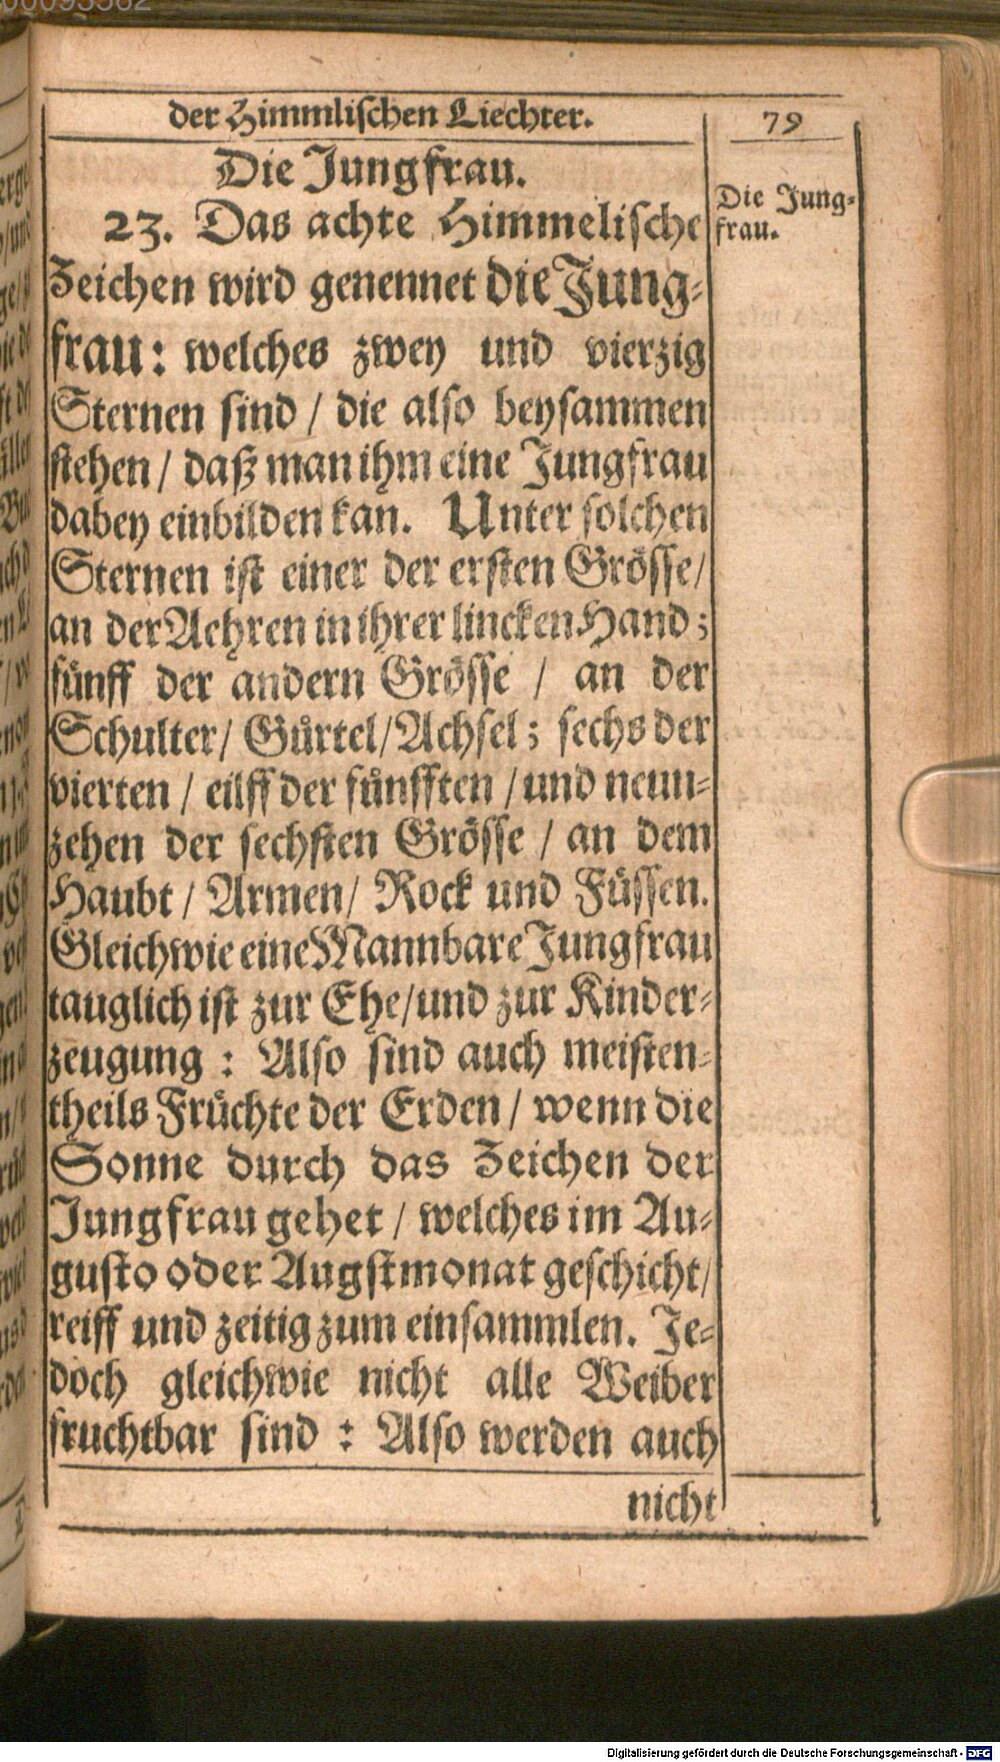 der Himmlischen Liechter.
79
Die Jungfrau.
Die Jung-
frau.
23. Das achte Himmelische
Zeichen wird genennet die Jung-
frau: welches zwey und vierzig
Sternen sind / die also beysammen
stehen / daß man ihm eine Jungfrau
dabey einbilden kan. Unter solchen
Sternen ist einer der ersten Grösse /
an der Aehren in ihrer lincken Hand;
fünff der andern Grösse / an der
Schulter / Gürtel / Achsel; sechs der
vierten / eilff der fünfften / und neun-
zehen der sechsten Grösse / an dem
Haubt / Armen / Rock und Füssen.
Gleichwie eine Mannbare Jungfrau
tauglich ist zur Ehe / und zur Kinder-
zeugung : Also sind auch meisten-
theils Früchte der Erden / wenn die
Sonne durch das Zeichen der
Jungfrau gehet / welches im Au-
gusto oder Augstmonat geschicht /
reiff und zeitig zum einsammlen. Je-
doch gleichwie nicht alle Weiber
fruchtbar sind : Also werden auch
nicht
Digitalisierung gefördert durch die Deutsche Forschungsgemeinschaft - DFG